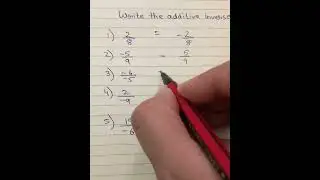 Write the additive inverse
1) 2/8 = -2/8
2) -5/9 = 5/9
3) -6/-5
4) 2/-9
5)